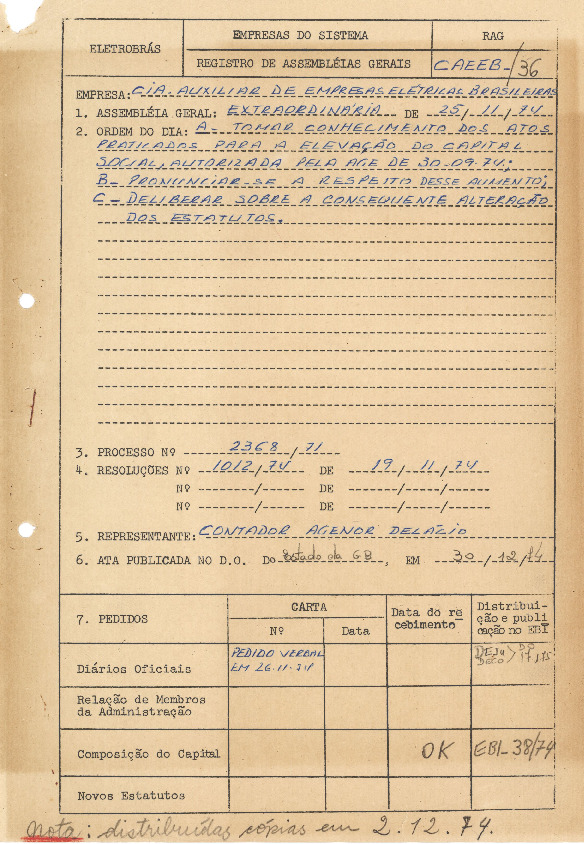 ELETROBRÁS
EMPRESAS DO SISTEMA
RAG
REGISTRO DE ASSEMBLÉIAS GERAIS
CAEEB-/36
EMPRESA: CIA. AUXILIAR DE EMPRESAS ELÉTRICAS BRASILEIRAS
1. ASSEMBLÉIA GERAL: EXTRAORDINÁRIA DE 25/11/74
2. ORDEM DO DIA: A - TOMAR CONHECIMENTO DOS ATOS
PRATICADOS PARA A ELEVAÇÃO DO CAPITAL
SOCIAL, AUTORIZADA PELA AGE DE 30-09-74;
B - PRONUNCIAR-SE A RESPEITO DESSE AUMENTO;
C - DELIBERAR SOBRE A CONSEQUENTE ALTERAÇÃO
DOS ESTATUTOS.
3. PROCESSO Nº 2368/71
4. RESOLUÇÕES Nº 1012/74 DE 19/11/74
Nº / DE / /
Nº / DE / /
5. REPRESENTANTE: CONTADOR AGENOR DELÁZIO
6. ATA PUBLICADA NO D.O. Do Estado da GB, EM 30/12/74
7. PEDIDOS
CARTA
Nº
Data
Data do re
cebimento
Distribui-
ção e publi
cação no EBI
Diários Oficiais
PEDIDO VERBAL
EM 26.11.74
Relação de Membros
da Administração
Composição do Capital
OK
EBI-38/74
Novos Estatutos
Nota: distribuídas cópias em 2.12.74.